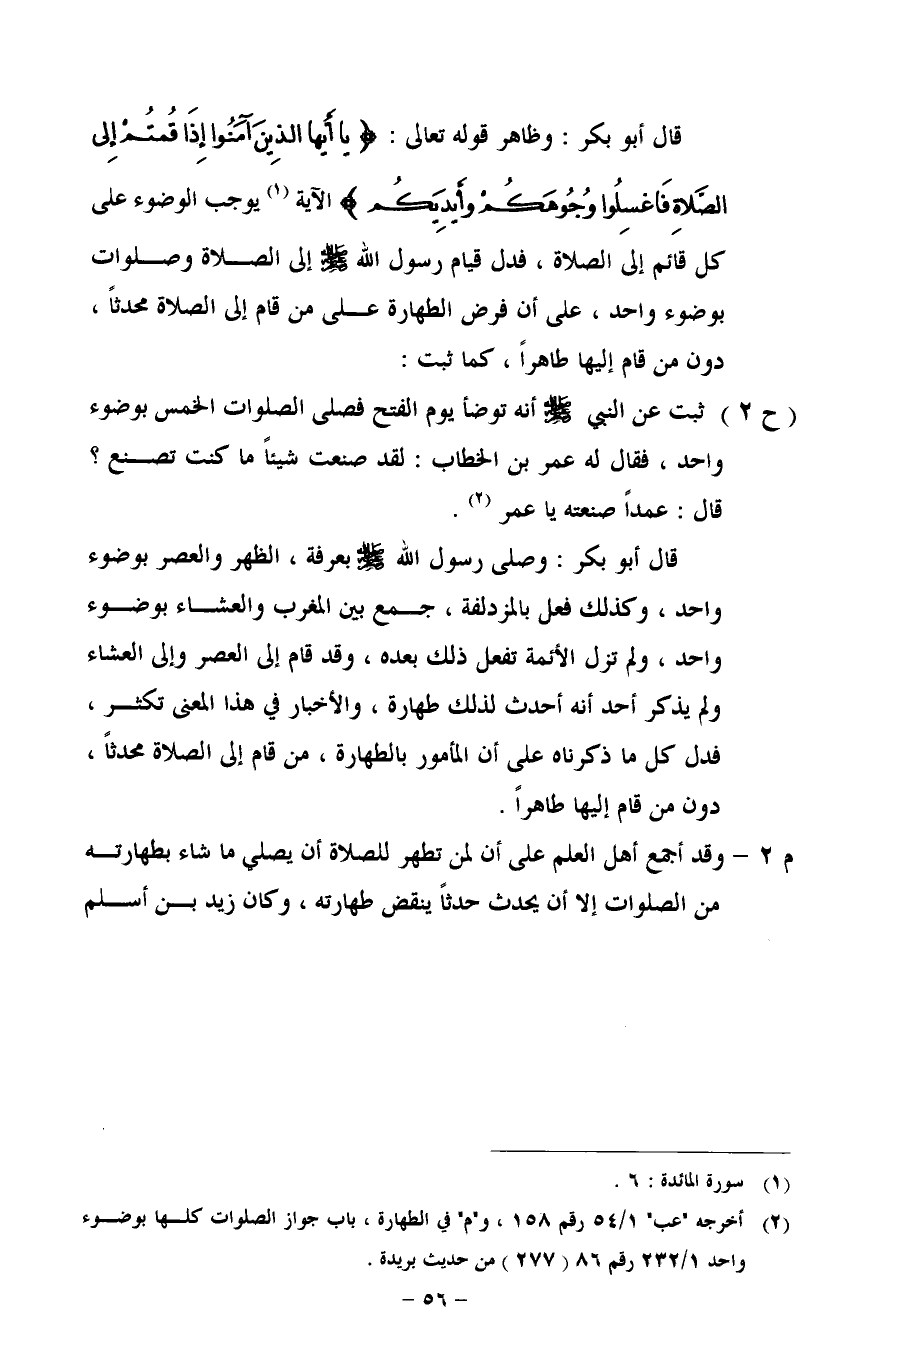 قال أبو بكر : وظاهر قوله تعالى : ﴿ يا أَيها الذينَ آمَنُوا إِذَا قُمتُمْ إلى
الصَّلاة فَاغسِلُوا وُجُوهَكُمْ وأَيدِيَكُم ﴾ الآية (١) يوجب الوضوء على
كل قائم إلى الصلاة ، فدل قيام رسول الله ﷺ إلى الصلاة وصلوات
بوضوء واحد ، على أن فرض الطهارة على من قام إلى الصلاة محدثاً ،
دون من قام إليها طاهراً ، كما ثبت :
( ح ٢ ) ثبت عن النبي ﷺ أنه توضأ يوم الفتح فصلى الصلوات الخمس بوضوء
واحد ، فقال له عمر بن الخطاب : لقد صنعت شيئاً ما كنت تصنع ؟
قال : عمداً صنعته يا عمر (٢) .
قال أبو بكر : وصلى رسول الله ﷺ بعرفة ، الظهر والعصر بوضوء
واحد ، وكذلك فعل بالمزدلفة ، جمع بين المغرب والعشاء بوضوء
واحد ، ولم تزل الأئمة تفعل ذلك بعده ، وقد قام إلى العصر وإلى العشاء
ولم يذكر أحد أنه أحدث لذلك طهارة ، والأخبار في هذا المعنى تكثر ،
فدل كل ما ذكرناه على أن المأمور بالطهارة ، من قام إلى الصلاة محدثاً ،
دون من قام إليها طاهراً .
م ٢ – وقد أجمع أهل العلم على أن لمن تطهر للصلاة أن يصلي ما شاء بطهارته
من الصلوات إلا أن يحدث حدثاً ينقض طهارته ، وكان زيد بن أسلم
(١) سورة المائدة : ٦ .
(٢) أخرجه "عب" ٥٤/١ رقم ١٥٨ ، و"م" في الطهارة ، باب جواز الصلوات كلها بوضوء
واحد ٢٣٢/١ رقم ٨٦ ( ٢٧٧ ) من حديث بريدة .
– ٥٦ –